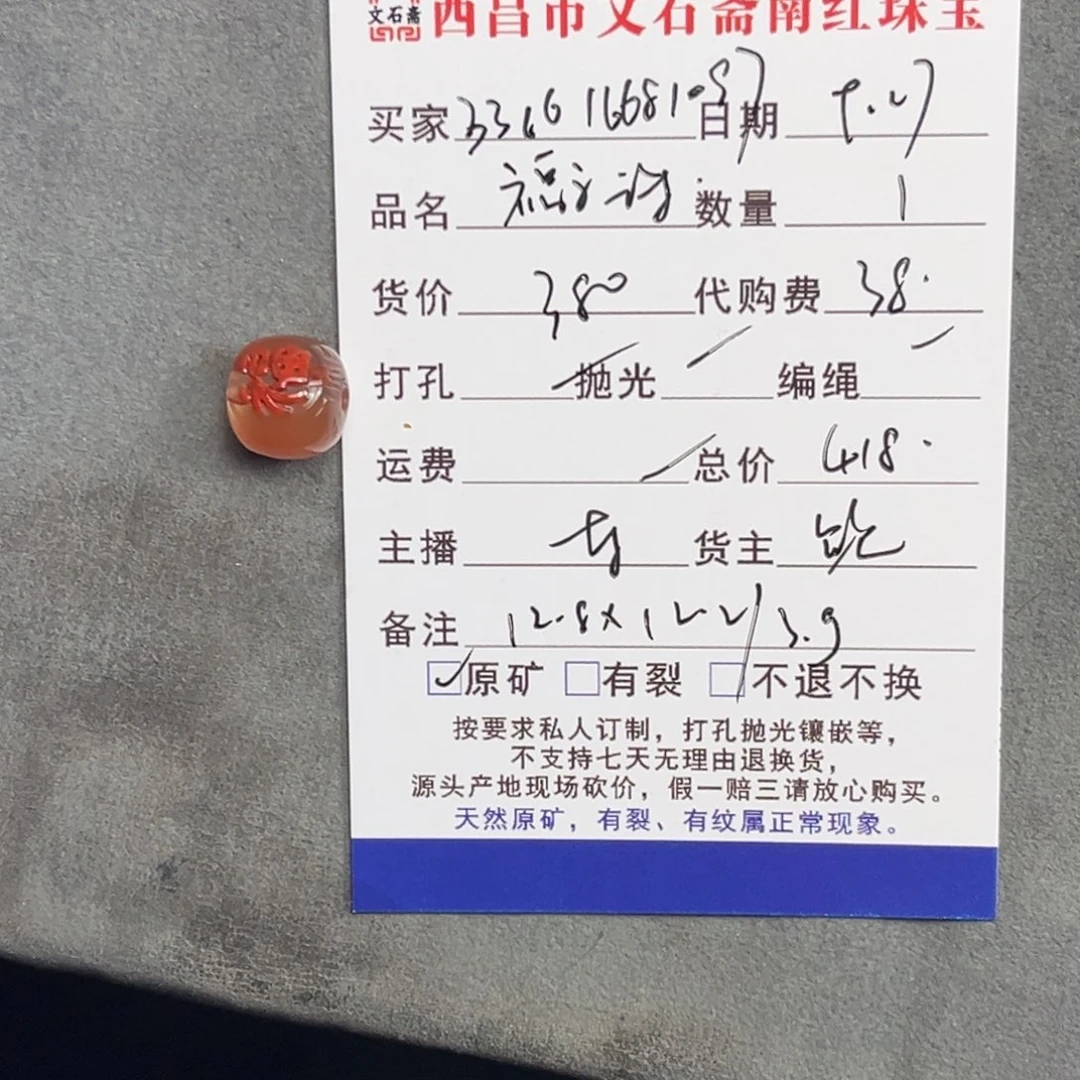 文石斋 西昌市文石斋南红珠宝
买家 日期
品名 数量 1
货价 380 代购费 38.
打孔 抛光 编绳
运费 总价 418.
主播 货主
备注 12.8X122/3.9
原矿 有裂 不退不换
按要求私人订制，打孔抛光镶嵌等，
不支持七天无理由退换货，
源头产地现场砍价，假一赔三请放心购买。
天然原矿，有裂、有纹属正常现象。